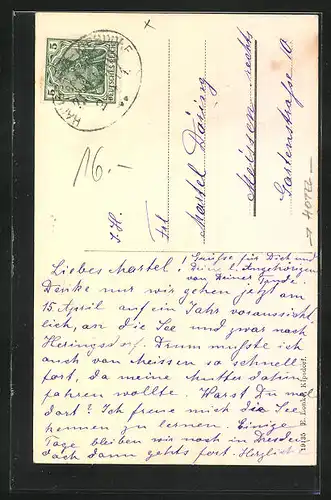 5 5
DEUTSCHES REICH
16.-
I. H.
Frl.
Martel Döring
Meissen rechts
Gartenstrasse 10
Grüsse für Dich und
Deine l. Angehörigen
von Deiner Trude.
Liebes Martel!
Denke nur wir gehen jetzt am
15. April auf ein Jahr voraussicht-
lich, an die See und zwar nach
Heringsdorf. Drum musste ich
auch von Meissen so schnell
fort, da meine Mutter dahin
fahren wollte. Warst Du mal
dort? Ich freue mich die See
kennen zu lernen. Einige
Tage bleiben wir noch in Dresden
doch dann gehts fort. Herzlich